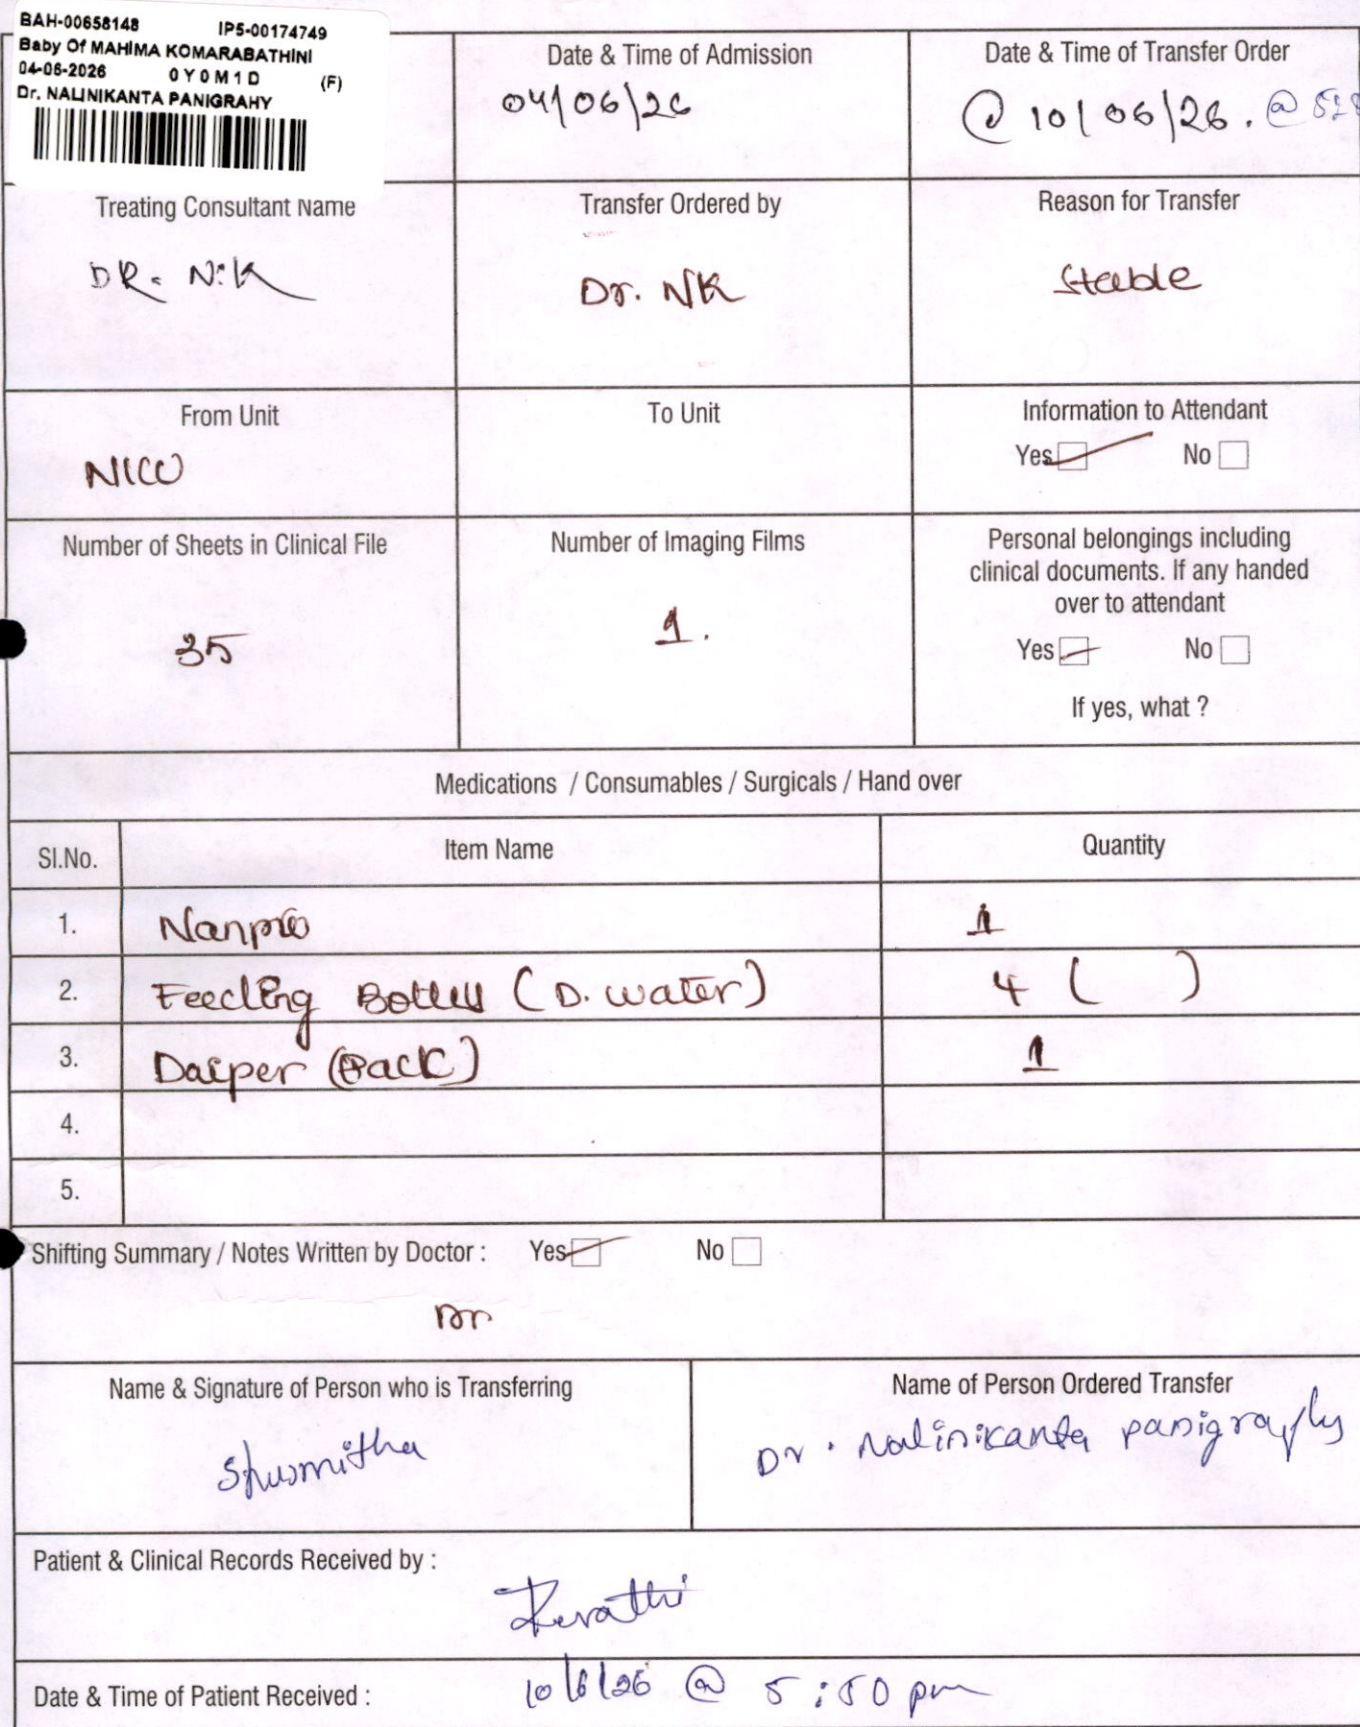 BAH-00658148 IP5-00174749
Baby Of MAHIMA KOMARABATHINI
04-06-2026 0Y0M1D (F)
Dr. NALINIKANTA PANIGRAHY
Date & Time of Admission
04/06/26
Date & Time of Transfer Order
@ 10/06/26. @
Treating Consultant Name
DR. N.K
Transfer Ordered by
Dr. NK
Reason for Transfer
Stable
From Unit
NICU
To Unit
Information to Attendant
Yes No
Number of Sheets in Clinical File
35
Number of Imaging Films
1.
Personal belongings including
clinical documents. If any handed
over to attendant
Yes No
If yes, what ?
Medications / Consumables / Surgicals / Hand over
Sl.No. Item Name Quantity
1. Nanpro 1
2. Feeding Bottles (D. water) 4 ( )
3. Daiper (Pack) 1
4.
5.
Shifting Summary / Notes Written by Doctor : Yes No
Dr
Name & Signature of Person who is Transferring
Shusmitha
Name of Person Ordered Transfer
Dr. Nalinikanta panigraphy
Patient & Clinical Records Received by :
Date & Time of Patient Received : 10/6/26 @ 5:50 pm